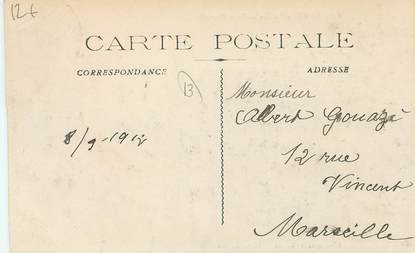 12€
CARTE POSTALE
CORRESPONDANCE
ADRESSE
13
8/9-1912
Monsieur
Albert Gouazé
12 rue
Vincent
Marseille